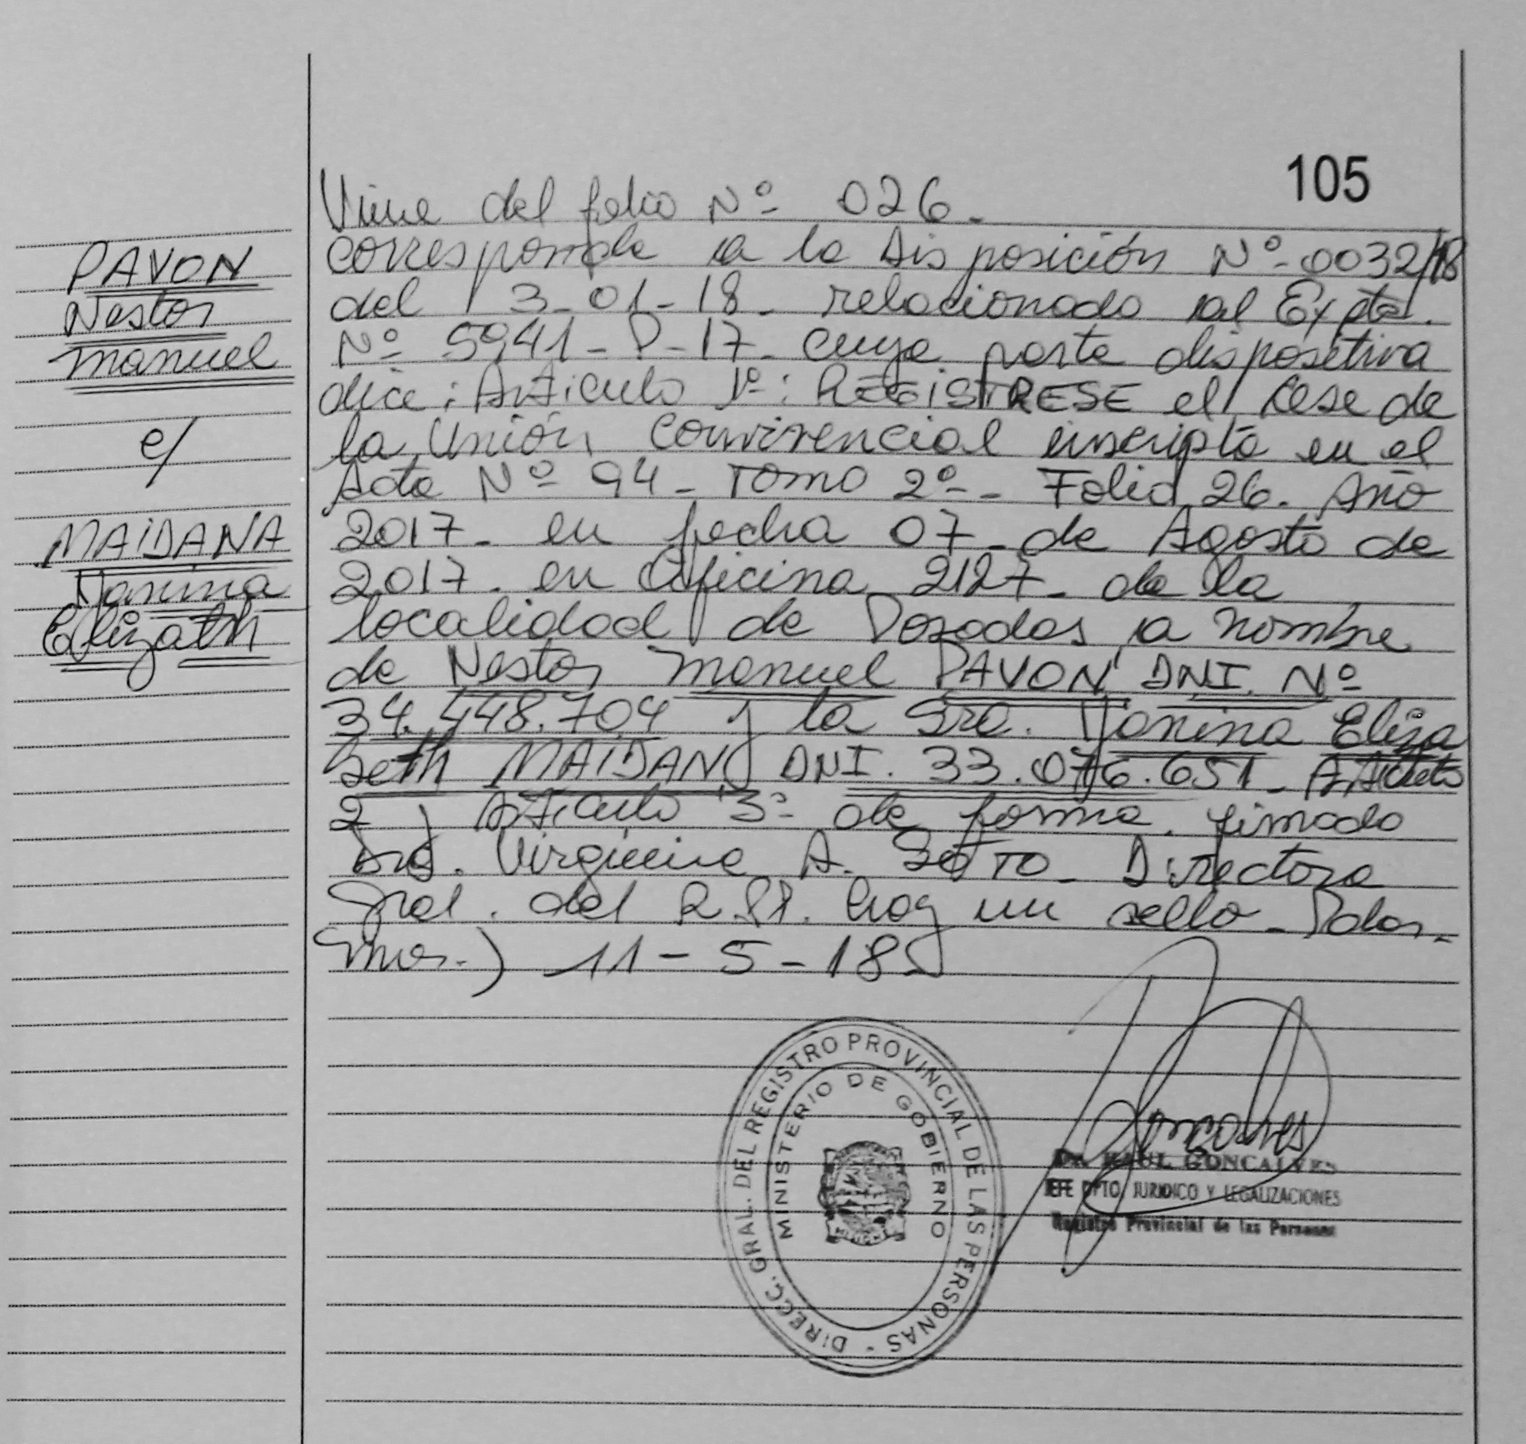 105
Viene del folio Nº 026.
PAVON
Nestor
Manuel
e/
MAIDANA
Yanina
Elizabth
corresponde a la Disposición Nº 0032/18
del 13-01-18 relacionado al Expte.
Nº 5941-P-17- cuya parte dispositiva
dice: Articulo 1º: REGISTRESE el Cese de
la Unión Convivencial inscripta en el
Acta Nº 94- Tomo 2º- Folio 26. Año
2017- en fecha 07 de Agosto de
2017. en Oficina 2127- de la
localidad de Posadas a nombre
de Nestor Manuel PAVON DNI. Nº
34.448.704 y la Sra. Yanina Eliza
beth MAIDANA DNI. 33.076.651- Articulo
2 y Articulo 3º de forma. firmado
Dra. Virginia A. Directora
Gral. del R.P.P. hay un sello- Pdas.
Mnes.) 11-5-18
DIRECC. GRAL. DEL REGISTRO PROVINCIAL DE LAS PERSONAS -
MINISTERIO DE GOBIERNO
Goncalves
Dr. RAUL GONCALVES
JEFE DPTO. JURIDICO Y LEGALIZACIONES
Registro Provincial de las Personas